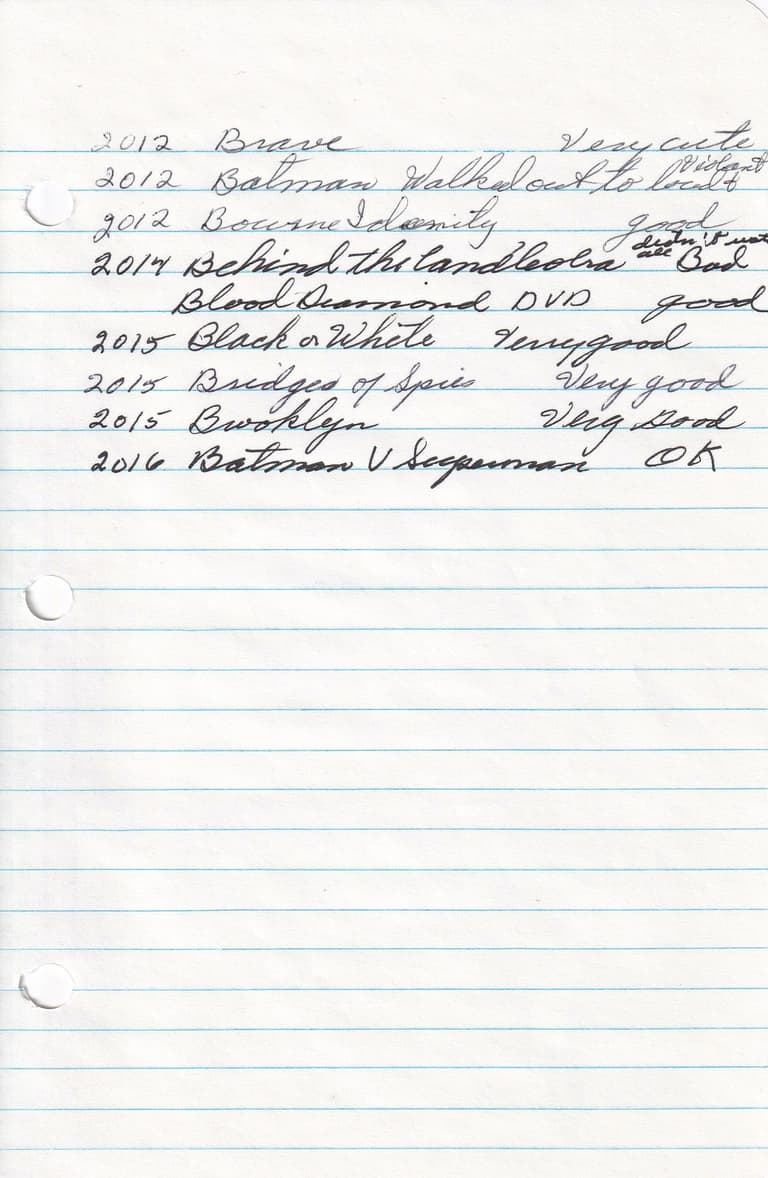 2012 Brave Very cute
2012 Batman Walked out to loud & Violant
2012 Bourne Idenity good
2014 Behind the Candleobra didn't wat all Bad
Blood Diamond DVD good
2015 Black or White Very good
2015 Bridges of Spies Very good
2015 Brooklyn Very Good
2016 Batman V Superman OK